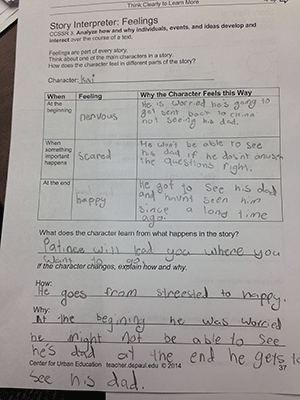 Think Clearly to Learn More
Story Interpreter: Feelings
CCSSR 3. Analyze how and why individuals, events, and ideas develop and
interact over the course of a text.
Feelings are part of every story.
Think about one of the main characters in a story.
How does the character feel in different parts of the story?
Character: Kai
When Feeling Why the Character Feels this Way
At the beginning nervous He is worried he's going to
get sent back to China
not seeing his dad.
When something important happens scared He won't be able to see
his dad if he dosnt
the questions right.
At the end happy He got to see his dad
and seen him
since a long time
ago.
What does the character learn from what happens in the story?
Patince will lead you where you
want to go.
If the character changes, explain how and why.
How:
He goes from to happy.
Why:
At the begining he was worried
he might not be able to see
he's dad at the end he gets to
Center for Urban Education teacher.depaul.edu © 2014
37
see his dad.